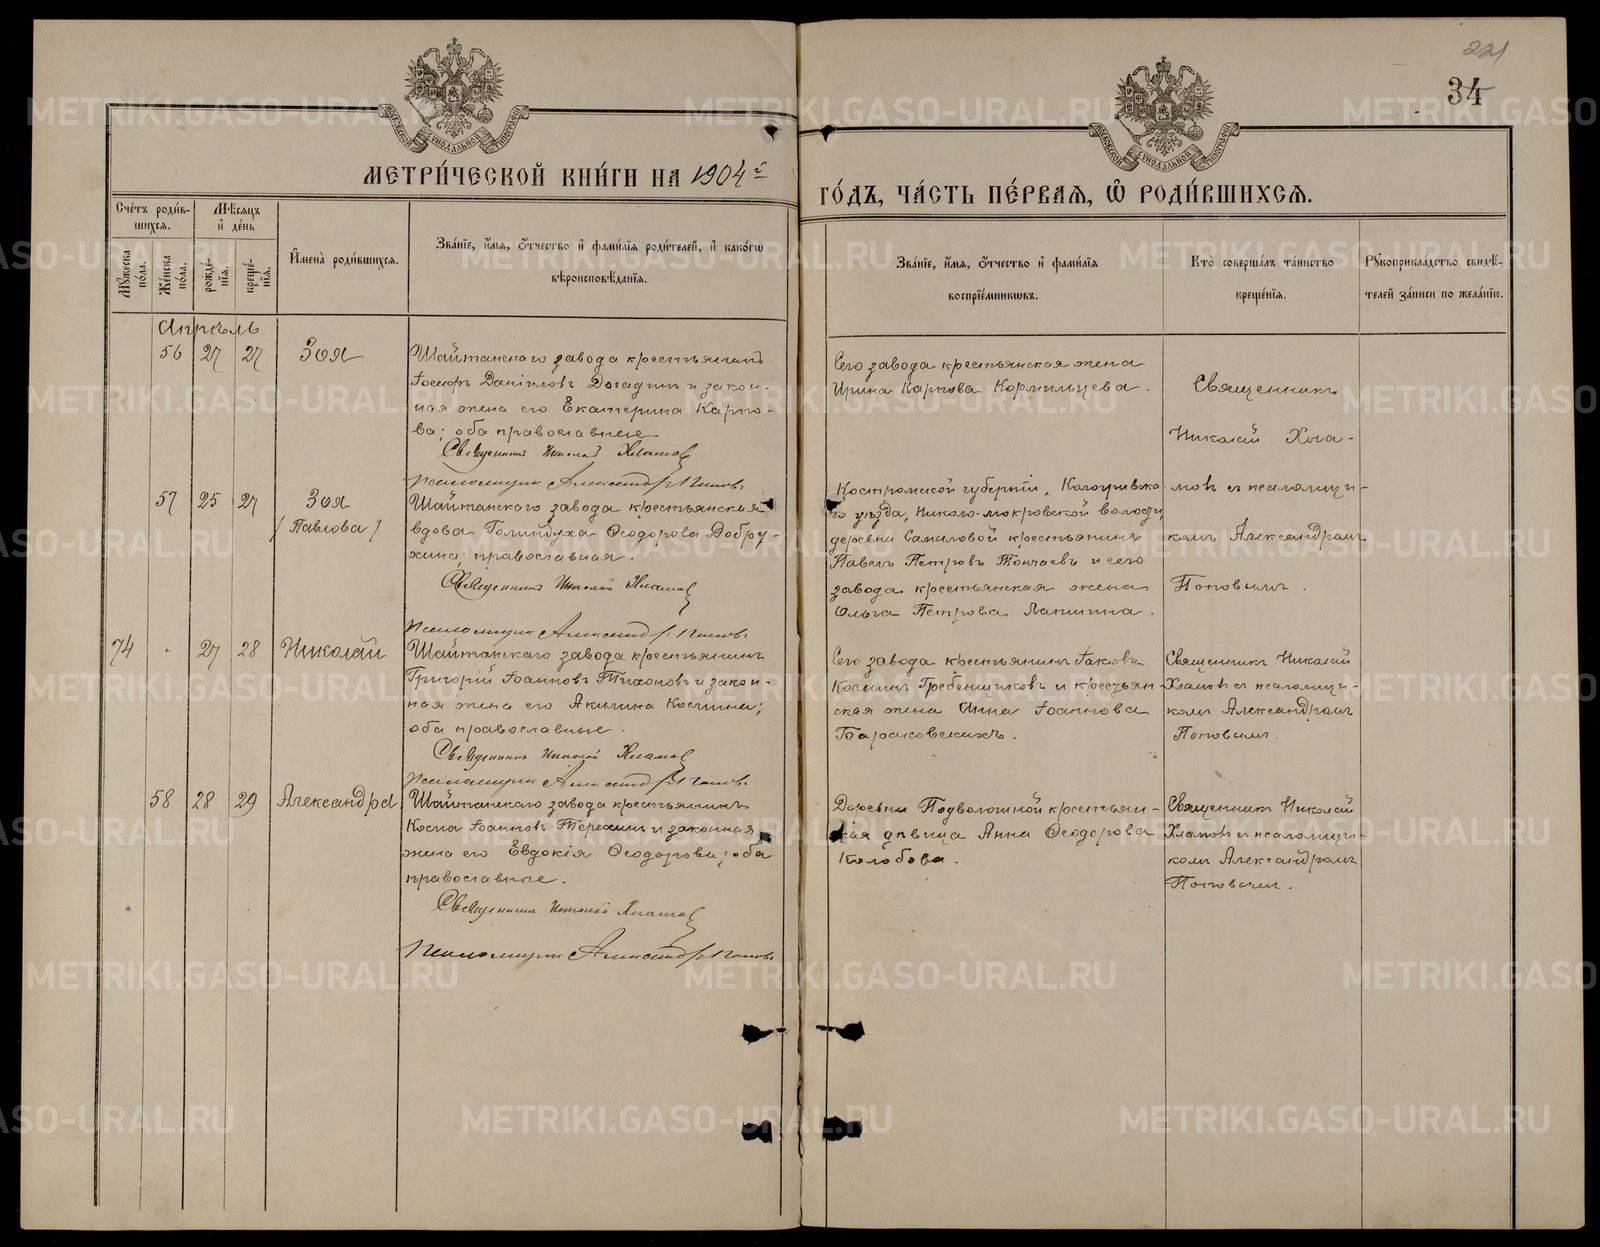 221
34
МОСКОВСКОЙ СѴНОДАЛЬНОЙ ТИПОГРАФІИ
МОСКОВСКОЙ СѴНОДАЛЬНОЙ ТИПОГРАФІИ
МЕТРИ́ЧЕСКОЙ КНИ́ГИ НА 1904й
ГО́ДЪ, ЧА́СТЬ ПЕ́РВАѦ, Ѡ҆ РОДИ́ВШИХСѦ.
Сче́тъ роди́в-
шихсѧ.
Мꙋжеска по́ла.
Женска по́ла.
Мѣ́сѧцъ
и҆ де́нь
рожде́-
нїѧ.
креще́-
нїѧ.
И҆мена̀ роди́вшихсѧ.
Зва́нїе, и҆́мѧ, ѻ҆́тчество и҆ фами́лїѧ роди́телей, и҆ како́гѡ
вѣроисповѣ́данїѧ.
Зва́нїе, и҆́мѧ, ѻ҆́тчество и҆ фами́лїѧ
воспрїе́мникѡвъ.
Кто̀ соверша́лъ та́инство
креще́нїѧ.
Рꙋкоприкла́дство свидѣ́-
телей за́писи по жела́нїю.
Апрѣль
56 27 27 Зоя
Шайтанскаго завода крестьянинъ
Іосифъ Даніиловъ Догадинъ и закон-
ная жена его Екатерина Карпо-
ва; оба православные
Священникъ Николай Хламовъ
Псаломщик Александръ Поповъ.
Сего завода крестьянская жена
Ирина Карпова Кормильцева.
Священникъ
Николай Хла-
мовъ съ псаломщи-
комъ Александромъ
Поповымъ.
57 25 27 Зоя
/Павлова/.
Шайтанскаго завода крестьянская
вдова Голиндуха Ѳеодорова Добру-
хина; православная.
Священникъ Николай Хламовъ
Псаломщик Александръ Поповъ.
Костромской губерніи, Кологривска-
го уѣзда, Николо-мокровской волости,
деревни Самыловой крестьянинъ
Павелъ Петровъ Тончаевъ и сего
завода крестьянская жена
Ольга Петрова Лапшина.
74 " 27 28 Николай
Шайтанскаго завода крестьянинъ
Григорій Іоанновъ Тихоновъ и закон-
ная жена его Акилина Космина;
оба православные.
Священникъ Николай Хламовъ
Псаломщик Александръ Поповъ.
Сего завода крестьянинъ Іаковъ
Косминъ Гребенщиковъ и крестьян-
ская жена Анна Іоаннова
Бараковскихъ.
Священникъ Николай
Хламовъ съ псаломщи-
комъ Александромъ
Поповымъ.
58 28 29 Александра
Шайтанскаго завода крестьянинъ
Косма Іоанновъ Терехинъ и законная
жена его Евдокія Ѳеодорова; оба
православные.
Священникъ Николай Хламовъ
Псаломщик Александръ Поповъ.
Деревни Подволошной крестьян-
ская дѣвица Анна Ѳеодорова
Колобова.
Священникъ Николай
Хламовъ съ псаломщи-
комъ Александромъ
Поповымъ.
METRIKI.GASO-URAL.RU